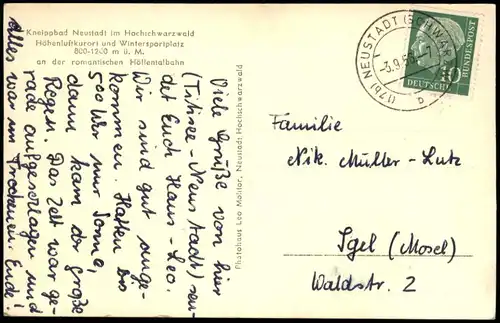 Kneippbad Neustadt im Hochschwarzwald
Höhenluftkurort und Wintersportplatz
800-1200 m ü. M.
an der romantischen Höllentalbahn
Viele Grüße von hier
(Titisee-Neustadt) sen-
det Euch Hans-Leo.
Wir sind gut ange-
kommen. Hatten bis
500 km nur Sonne,
dann kam der große
Regen. Das Zelt war ge-
rade aufgeschlagen und
Alles war im Trockenen. Ende!
Photohaus Leo Molitor, Neustadt Hochschwarzwald
(17b) NEUSTADT (SCHWARZW)
-3.9.
b
DEUTSCHE
BUNDESPOST
10
Familie
Nik. Müller-Lutz
Igel (Mosel)
Waldstr. 2